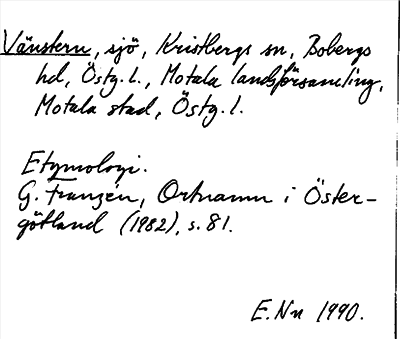 Vänstern, sjö, Kristbergs sn, Bobergs
hd, Östg. l., Motala landsförsamling,
Motala stad, Östg. l.
Etymologi.
G. Franzén, Ortnamn i Öster-
götland (1982), s. 81.
E. Nn 1990.